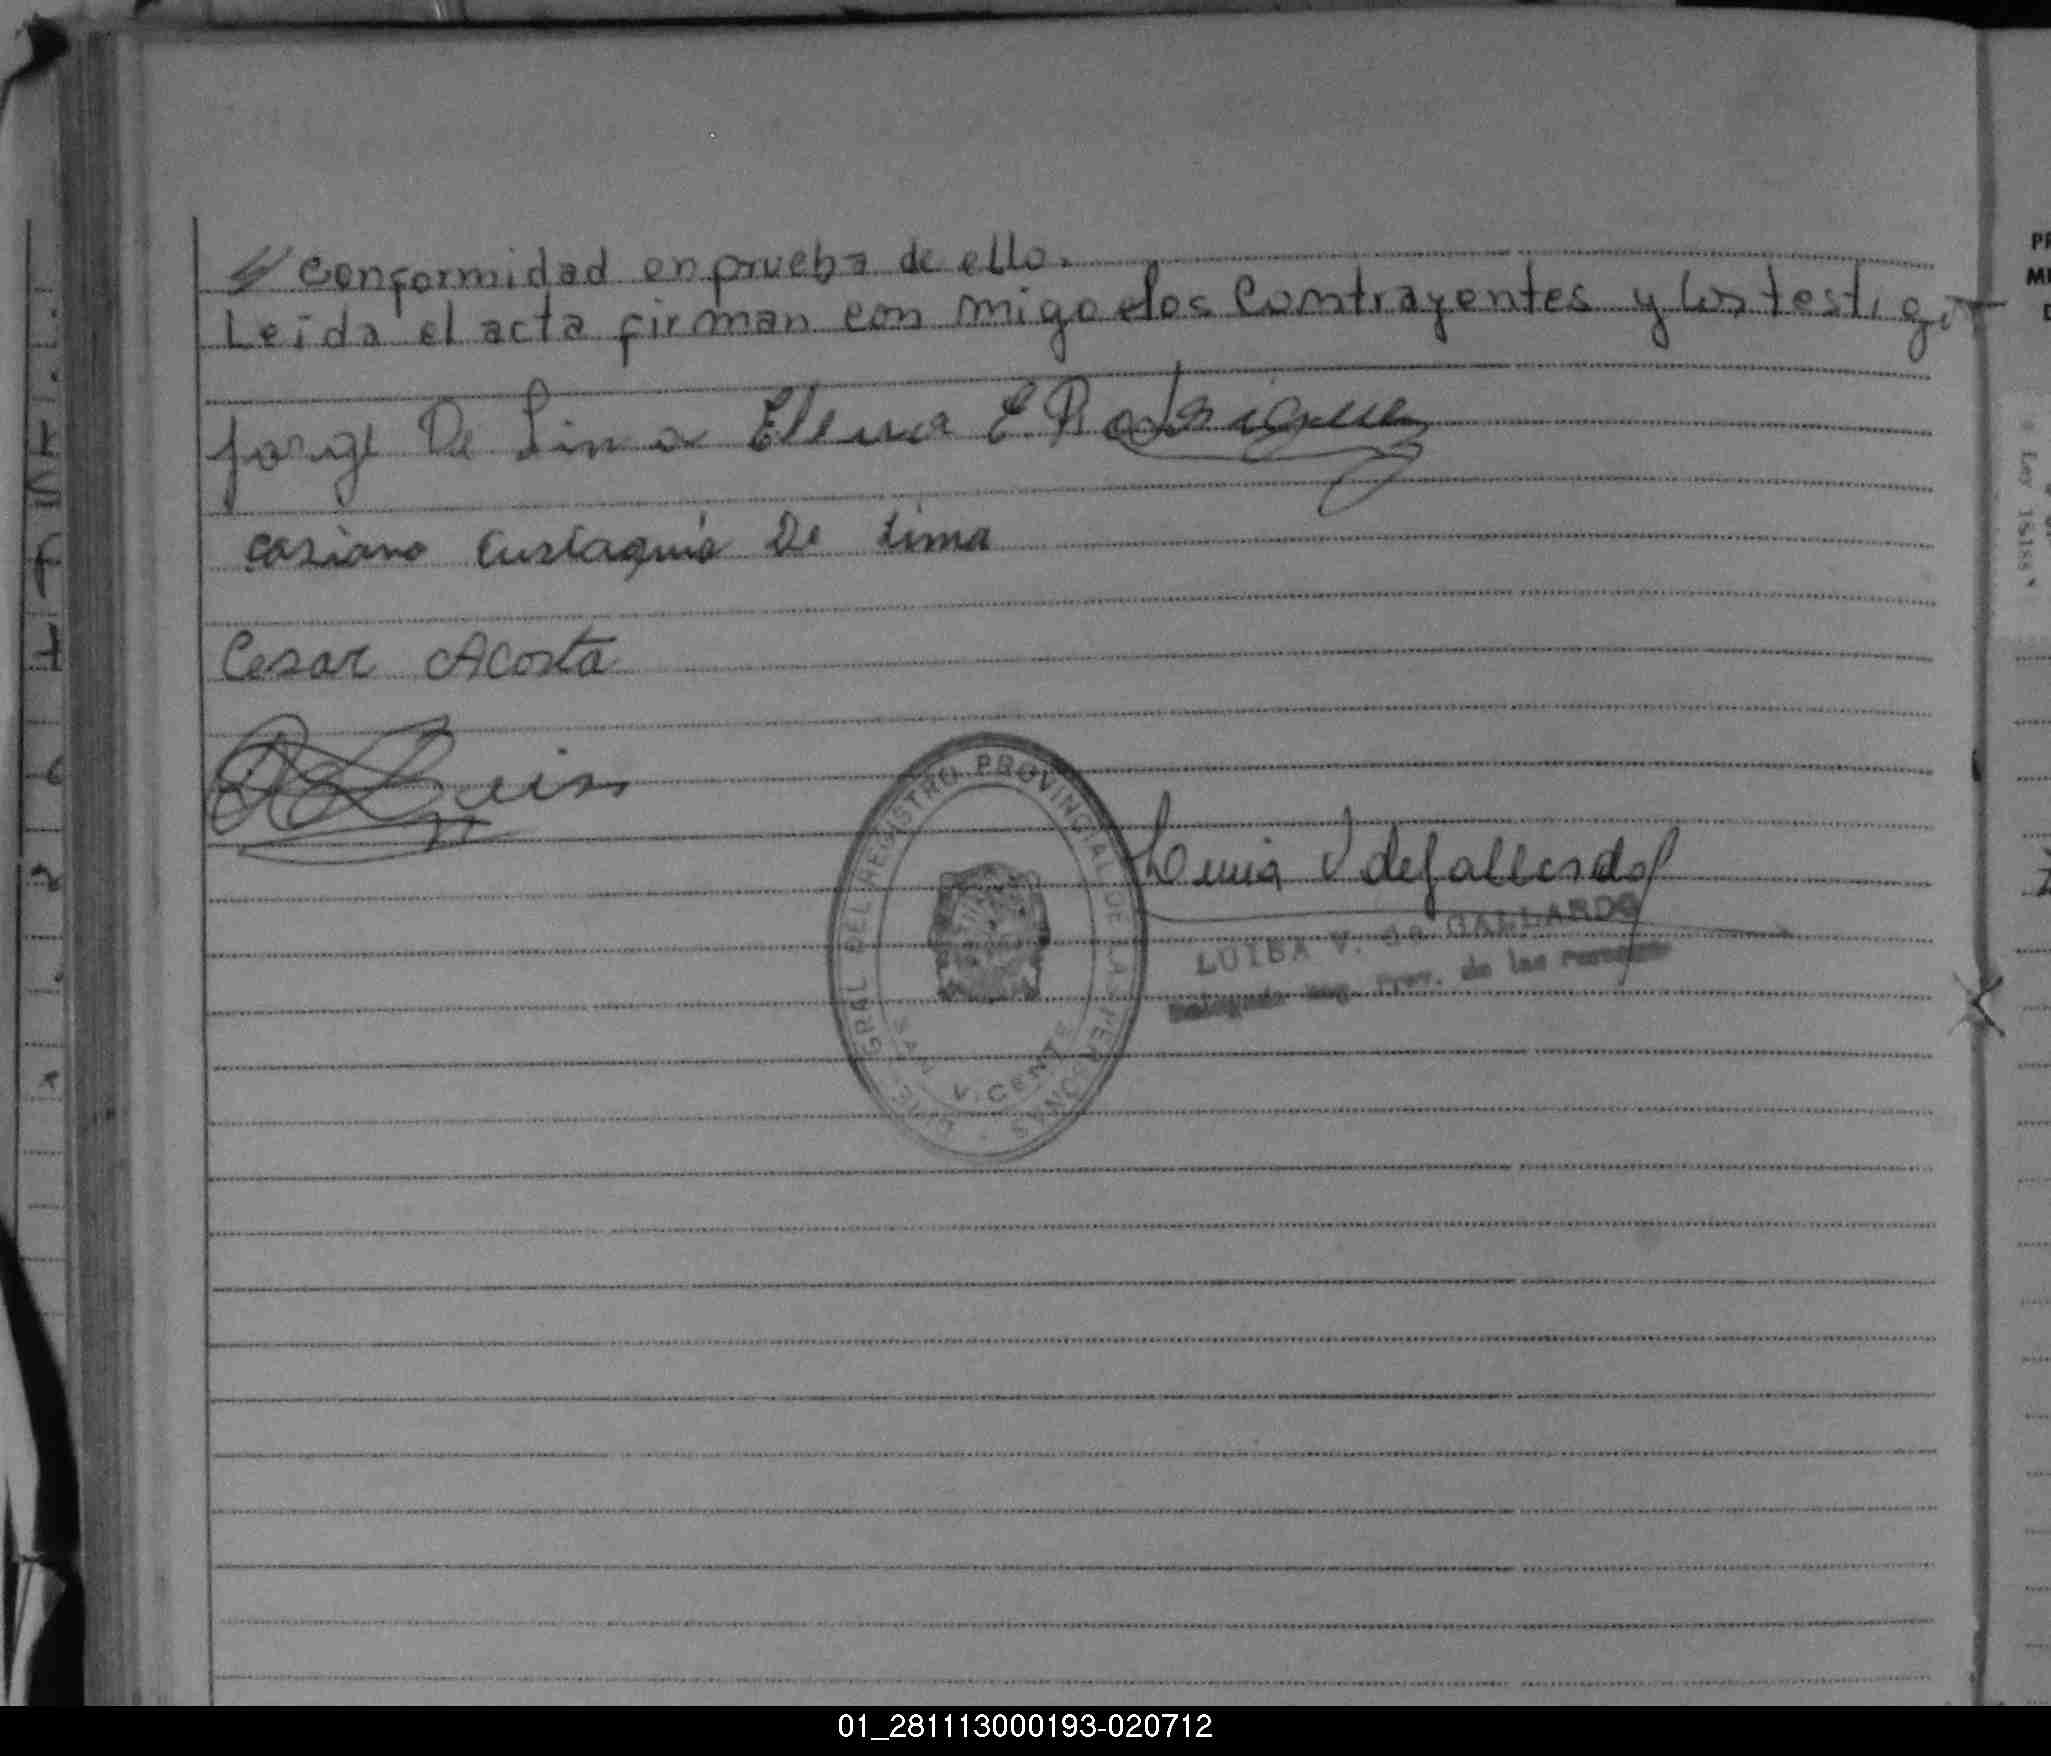 // Conformidad en prueba de ello.
Leida el acta firman con migo los Contrayentes y los testigos
Jorge De Lima Elena E Rodriguez
Casiano Eustaquio De Lima
Cesar Acosta
DEL REGISTRO PROVINCIAL DE LAS PERSONAS
SAN VICENTE
Luisa V de Gallardo
LUISA V. de GALLARDO
Delegada Reg. Prov. de las Personas
Ley
01_281113000193-020712